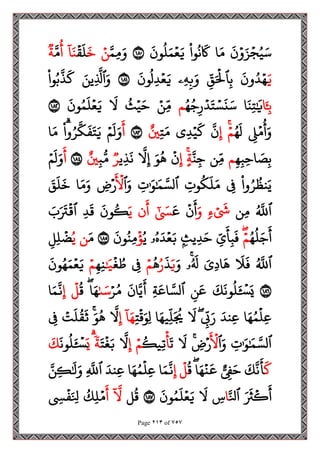 سَيُجْزَوْنَ مَا كَانُوا۟ يَعْمَلُونَ ١٨٠ وَمِمَّنْ خَلَقْنَآ أُمَّةٌ
يَهْدُونَ بِٱلْحَقِّ وَبِهِۦ يَعْدِلُونَ ١٨١ وَٱلَّذِينَ كَذَّبُوا۟
بِـَٔايَـٰتِنَا سَنَسْتَدْرِجُهُم مِّنْ حَيْثُ لَا يَعْلَمُونَ ١٨٢
وَأُمْلِى لَهُمْ ۚ إِنَّ كَيْدِى مَتِينٌ ١٨٣ أَوَلَمْ يَتَفَكَّرُوا۟ ۗ مَا
بِصَاحِبِهِم مِّن جِنَّةٍ ۚ إِنْ هُوَ إِلَّا نَذِيرٌ مُّبِينٌ ١٨٤ أَوَلَمْ
يَنظُرُوا۟ فِى مَلَكُوتِ ٱلسَّمَـٰوَٰتِ وَٱلْأَرْضِ وَمَا خَلَقَ
ٱللَّهُ مِن شَىْءٍ وَأَنْ عَسَىٰٓ أَن يَكُونَ قَدِ ٱقْتَرَبَ
أَجَلُهُمْ ۖ فَبِأَىِّ حَدِيثٍۭ بَعْدَهُۥ يُؤْمِنُونَ ١٨٥ مَن يُضْلِلِ
ٱللَّهُ فَلَا هَادِىَ لَهُۥ ۚ وَيَذَرُهُمْ فِى طُغْيَـٰنِهِمْ يَعْمَهُونَ
١٨٦ يَسْـَٔلُونَكَ عَنِ ٱلسَّاعَةِ أَيَّانَ مُرْسَىٰهَا ۖ قُلْ إِنَّمَا
عِلْمُهَا عِندَ رَبِّى ۖ لَا يُجَلِّيهَا لِوَقْتِهَآ إِلَّا هُوَ ۚ ثَقُلَتْ فِى
ٱلسَّمَـٰوَٰتِ وَٱلْأَرْضِ ۚ لَا تَأْتِيكُمْ إِلَّا بَغْتَةً ۗ يَسْـَٔلُونَكَ
كَأَنَّكَ حَفِىٌّ عَنْهَا ۖ قُلْ إِنَّمَا عِلْمُهَا عِندَ ٱللَّهِ وَلَـٰكِنَّ
أَكْثَرَ ٱلنَّاسِ لَا يَعْلَمُونَ ١٨٧ قُل لَّآ أَمْلِكُ لِنَفْسِى
Page ٢١٣ of ٧٥٧